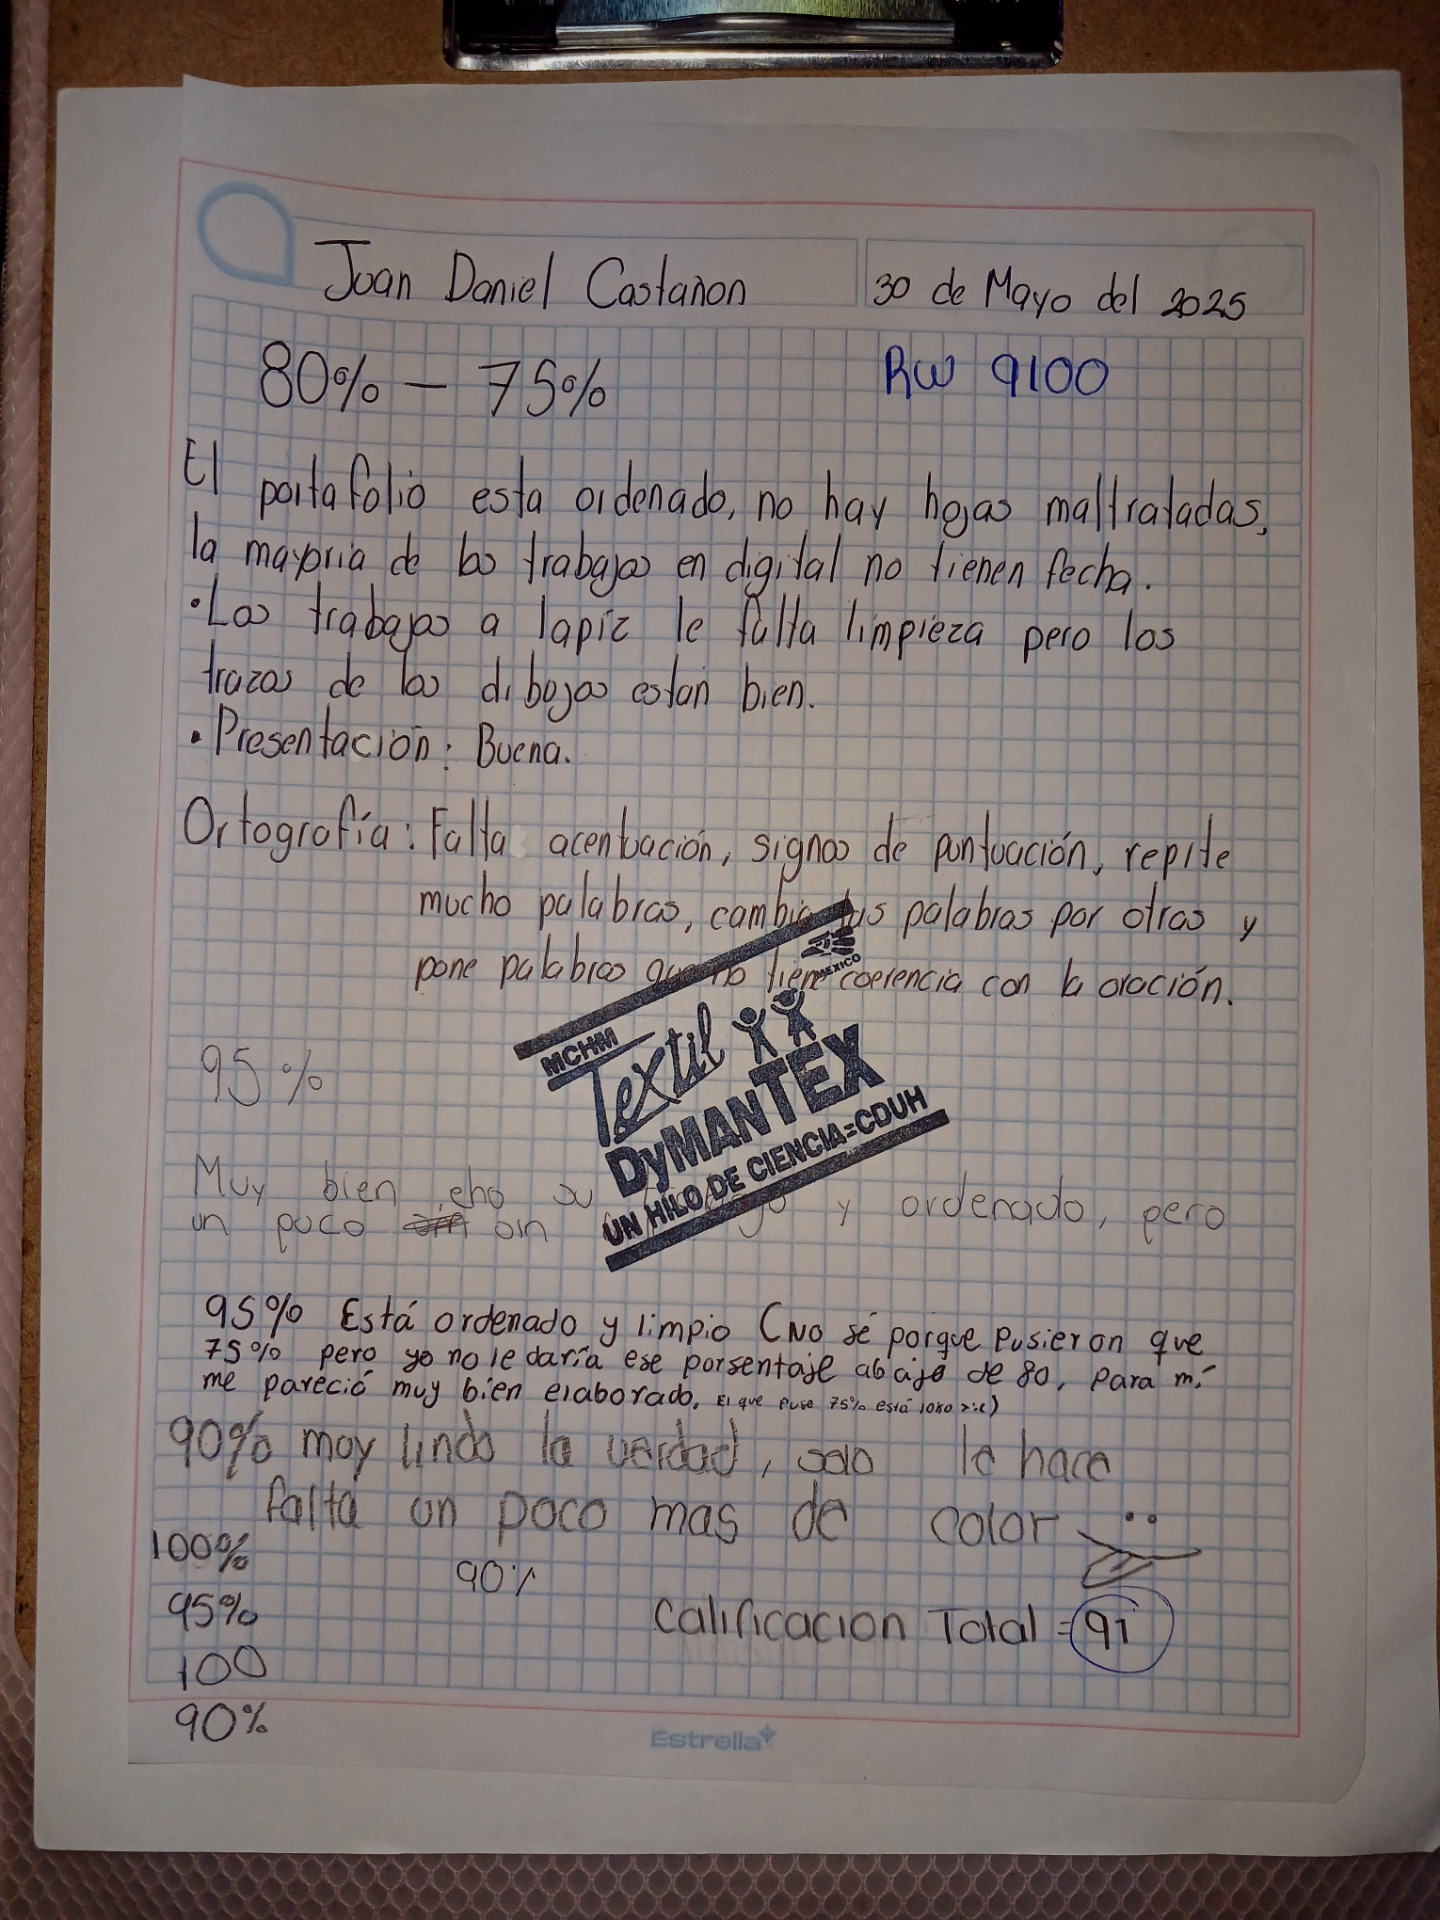 Joan Daniel Castañon
30 de Mayo del 2025
80% — 75%
RW 9100
El portafolio esta ordenado, no hay hojas maltratadas,
la mayoria de los trabajos en digital no tienen fecha.
• Los trabajos a lapiz le falta limpieza pero los
trazos de los dibojos estan bien.
• Presentación: Buena.
Ortografía: Falta acentuación, signos de puntuación, repite
mucho palabras, cambia las palabras por otras y
pone palabras que no tiene coerencia con la oración.
MEXICO
MCHM
Textil
DyMANTEX
UN HILO DE CIENCIA=CDUH
95%
Muy bien eho su y ordenado, pero
un poco sin
95% Está ordenado y limpio (No sé porque pusieron que
75% pero yo no le daría ese porsentaje abajo de 80, para mí
me pareció muy bien elaborado. El que puso 75% está loko >:c)
90% moy lindo la verdad, solo le hace
falta un poco mas de color
100%
90%
95%
Calificacion Total = 91
100
90%
Estrella